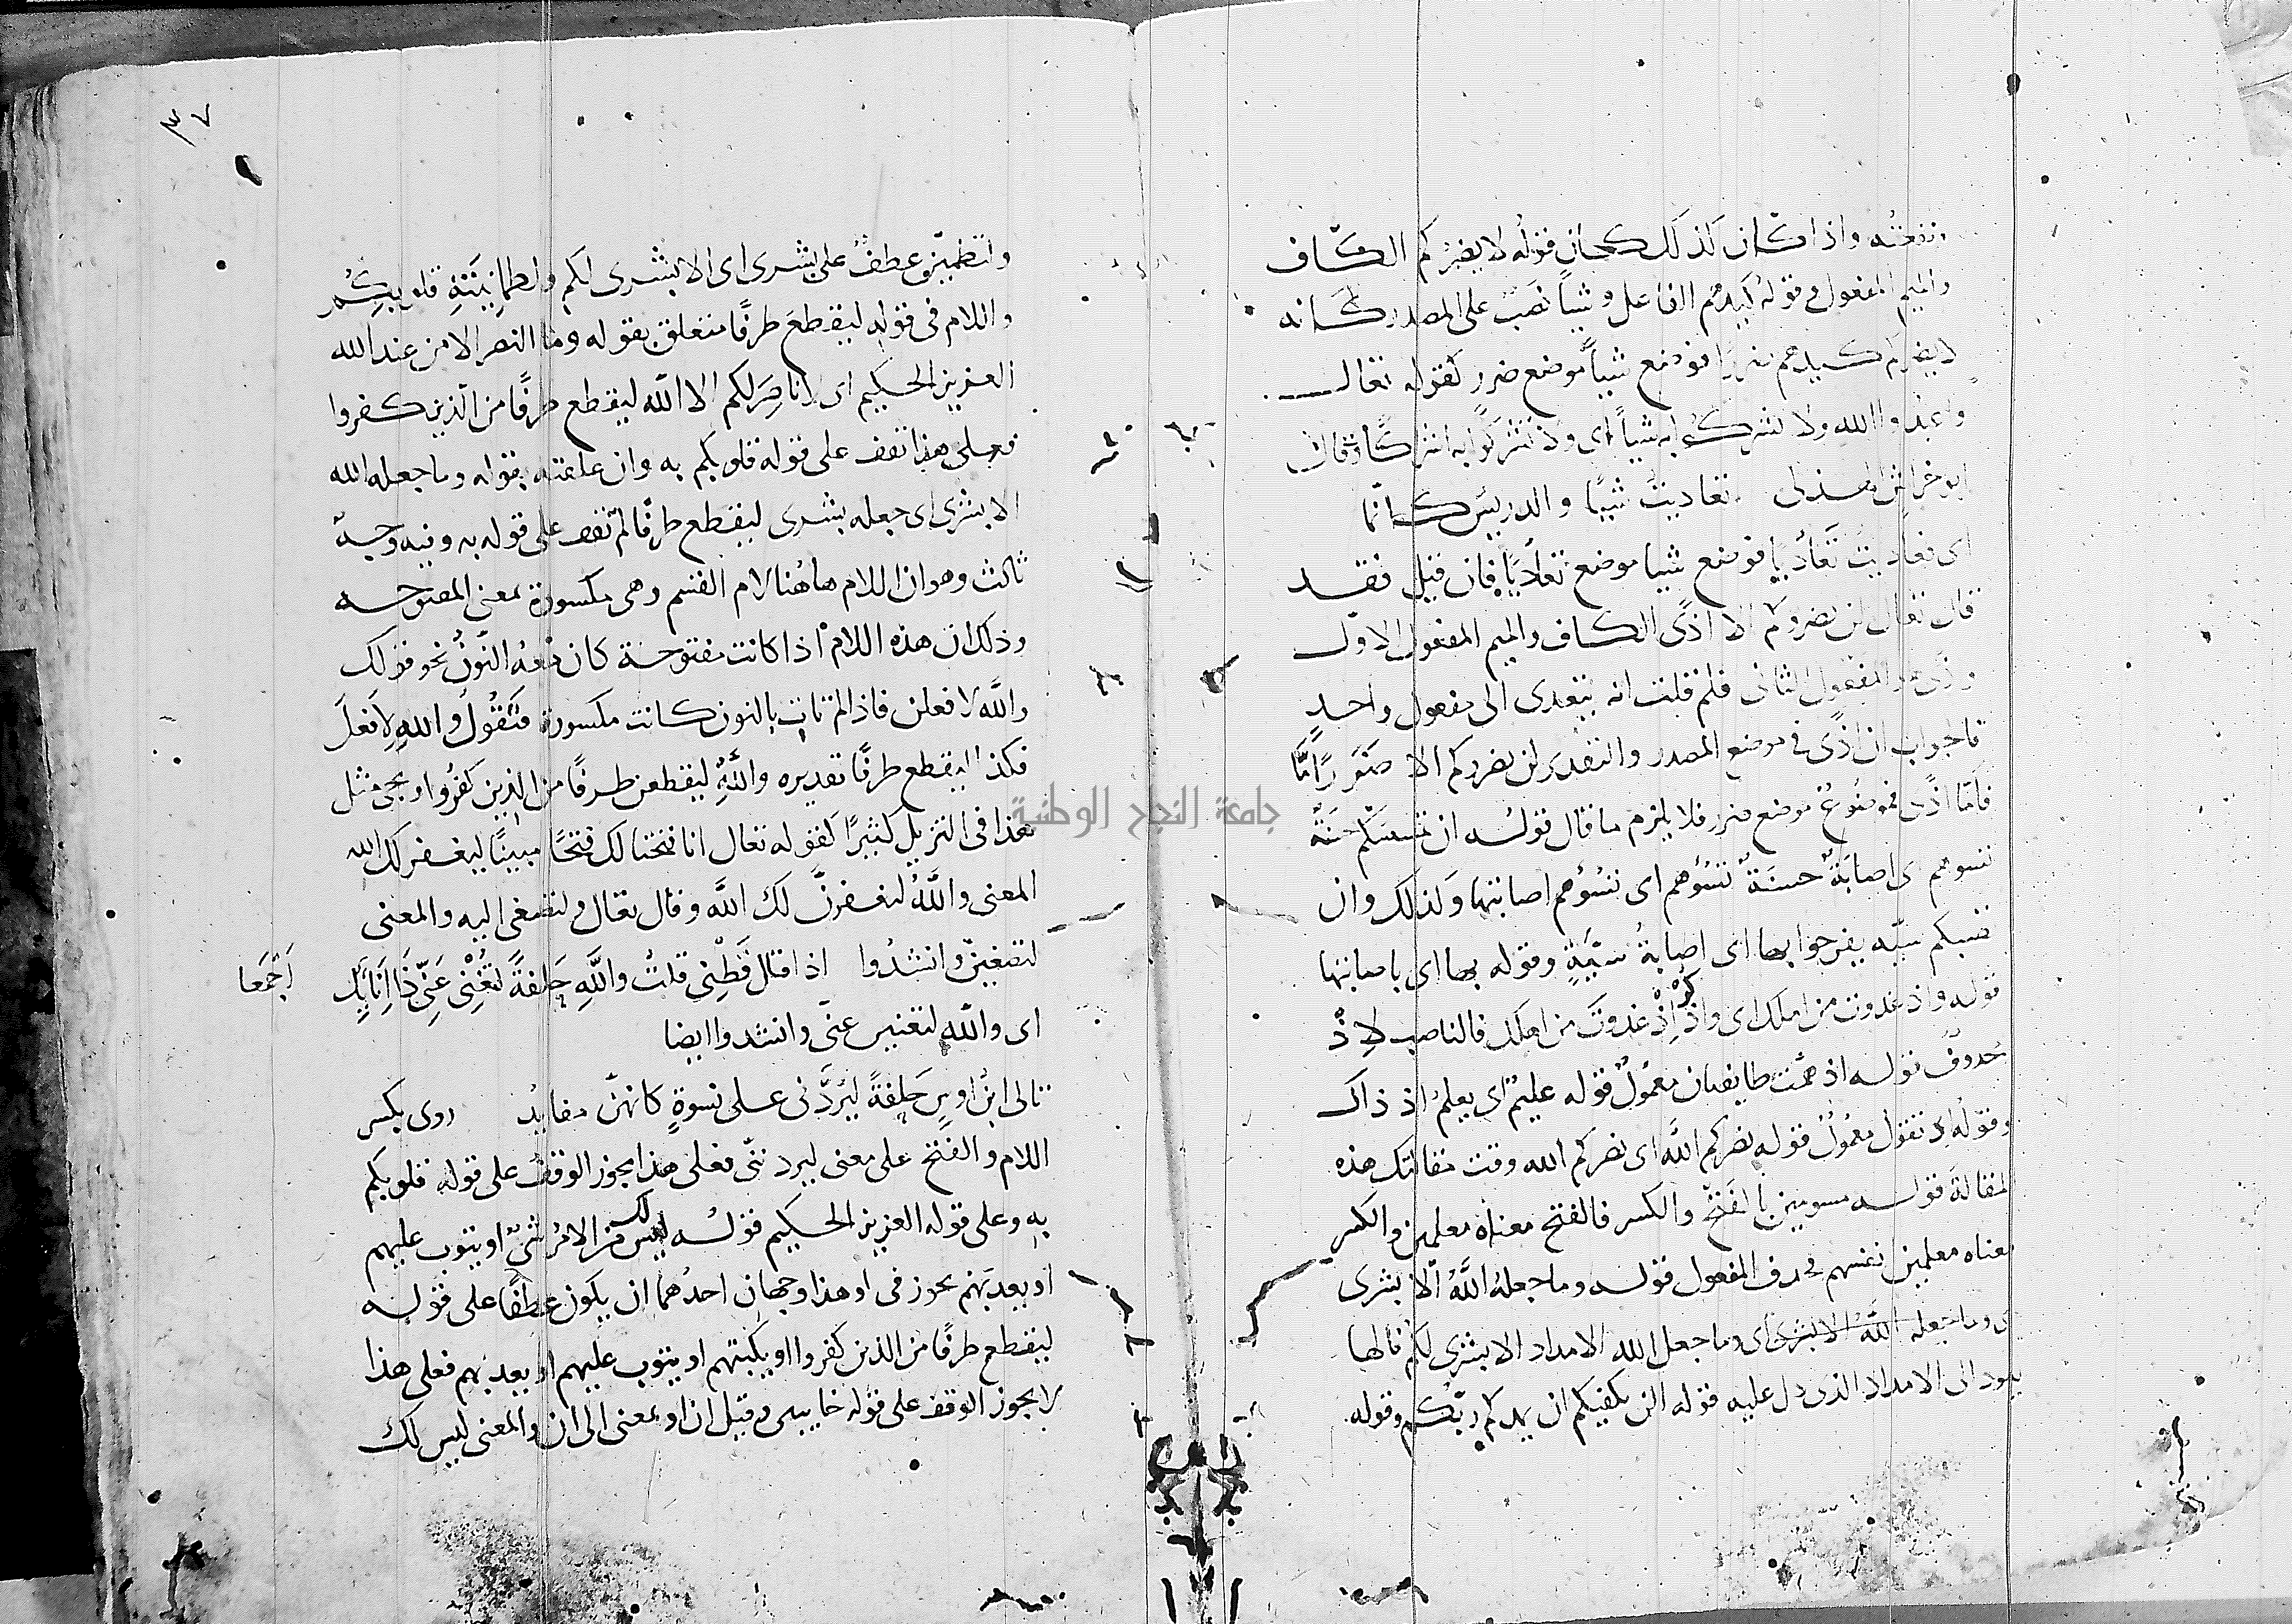 واذا كان كذلك كان قوله لا يضركم الكاف
والميم المفعول وقوله كيدهم الفاعل وشيأ نصب على المصدر كانه
لا يضركم كيدهم ضررا فوضع شيأ موضع ضرر كقوله تعالـــى
واعبدوا الله ولا تشركوا به شيأ اى ولا تشركوا به اشراكا وقال
ابو خراش الهذلى تعاديت شيا والدريس كانما
اى تعاديت تعاديا فوضع شيا موضع تعاديا فان قيل فقد
قال تعالى لن يضروكم الا اذًى الكاف والميم المفعول الاول
واذى هو المفعول الثانى فلم قلت انه يتعدى الى مفعول واحدٍ
فالجواب ان اذًى فى موضع المصدر والتقدير لن يضروكم الا ضررًا
فاما اذًى فموضوع موضع ضرر فلا يلزم ما قال قوله ان تمسسكم حسنة
تسوهم اى اصابة حسنة تسؤهم اى تسؤهم اصابتها وكذلك وان
تصبكم سيه يفرحوا بها اى اصابة سيّيةٍ وقوله بها اى باصابتها
قوله واذ غدوت من اهلك اى واذكر اذ غدوت من اهلك فالناصب لاِذْ
محذوف قوله اذ همت طايفتان معمول قوله عليم اى يعلم اذ ذاك
وقوله اذ تقول معمول قوله نصركم الله اى نصركم الله وقت مقالتك هذه
المقالة قوله مسومين بالفتح والكسر فالفتح معناه معلمين والكسر
معناه معلمين نفسهم فحذف المفعول قوله وما جعله الله الا بشرى
وما جعله الله الا بشرى اى وما جعل الله الامداد الا بشرى لكم فالها
يعود الى الامداد الذى دل عليه قوله الن يكفيكم ان يمدكم ربكم وقوله
٣٧
ولتطمئن عطف على بشرى اى الا بشرى لكم ولطمانينة قلوبكم
واللام فى قوله ليقطع طرفًا متعلق بقوله وما النصر الا من عند الله
العزيز الحكيم اى لا ناصر لكم الا الله ليقطع طرفًا من الذين كفروا
فعلى هذا تقف على قوله قلوبكم به وان علقته بقوله وما جعله الله
الا بشرى اى جعله بشرى ليقطع طرفًا لم تقف على قوله به وفيه وجه
ثالث وهو ان اللام هاهنا لام القسم وهى مكسورة بمعنى المفتوحه
وذلك ان هذه اللام اذا كانت مفتوحة كان معه النون نحو قولك
والله لا فعلن فاذا لم تات بالنون كانت مكسورة فتقول والله لاِفعلَ
فكذا ليقطع طرفًا تقديره والله ليقطعن طرفًا من الذين كفروا ويجى مثل
هذا فى التنزيل كثيرًا كقوله تعالى انا فتحنا لك فتحًا مبينًا ليغفر لك الله
المعنى والله ليغفرنّ لك الله وقال تعالى ولتصغى اليه والمعنى
لتصغينّ وانشدوا اذا قال قَطْنِى قلتُ واللهِ حِلفةً لتُغْنِى عَنِّى ذَا اِنَائِك اَجْمَعا
اى والله لتغنين عنّى وانشدوا ايضا
تالى ابن اوسٍ حَلفةً ليَرُدَّنى على نسوةٍ كانهنّ مفايدُ روى بكسر
اللام والفتح على معنى ليردننّى فعلى هذا يجوز الوقف على قوله قلوبكم
به وعلى قوله العزيز الحكيم قوله ليس لك من الامر شئ او يتوب عليهم
او يعذبهم يجوز فى او هذا وجهان احدهما ان يكون عطفًا على قوله
ليقطع طرفًا من الذين كفروا او يكبتهم او يتوب عليهم او يعذبهم فعلى هذا
لا يجوز الوقف على قوله خايبين وقيل ان او بمعنى الى ان والمعنى ليس لك
جامعة النجاح الوطنية